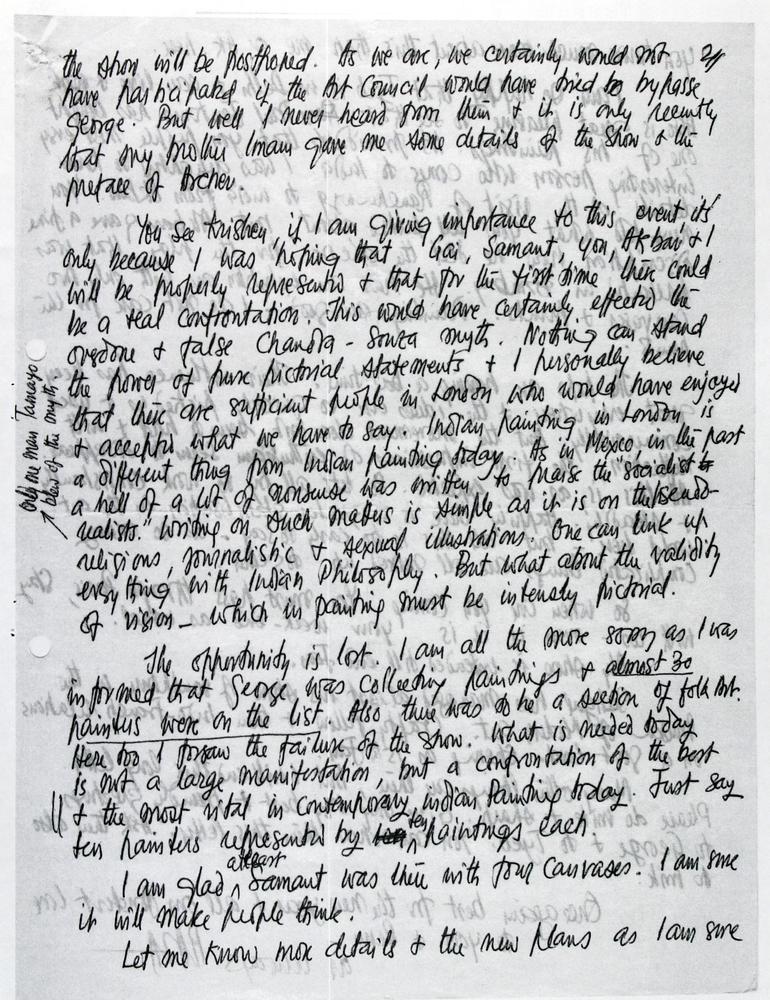 2/
the show will be postponed. As we are, we certainly would not
have participated if the Art Council would have tried to bypasse
George. But well I never heard from them & it is only recently
that my brother Imam gave me some details of the show & the
preface of Archer.
You see Krishen, if I am giving importance to this event, it's
only because I was hoping that Gai, Samant, you, Akbar & I
will be properly represented & that for the first time there could
be a real confrontation. This would have certainly effected the
overdone & false Chandra - Souza myth. Nothing can stand
the power of pure pictorial statements & I personally believe
that there are sufficient people in London who would have enjoyed
& accepted what we have to say. Indian painting in London is
a different thing from Indian painting today. As in Mexico, in the past
a hell of a lot of nonsense was written to praise the "socialist
realists." Writing on such matters is simple as it is on the pseudo-
religious, journalistic & sexual illustrations. One can link up
everything with Indian Philosophy. But what about the validity
of vision - which in painting must be intensely pictorial.
only one man Tamayo
blew of the myth
The opportunity is lost. I am all the more sorry as I was
informed that George was collecting paintings & almost 30
painters were on the list. Also there was to be a section of folk Art.
Here too I forsaw the failure of the show. What is needed today
is not a large manifestation, but a confrontation of the best
& the most vital in Contemporary indian Painting today. Just say
ten painters represented by ten paintings each.
I am glad atleast Samant was there with four canvases. I am sure
it will make people think.
Let me know more details & the new plans as I am sure